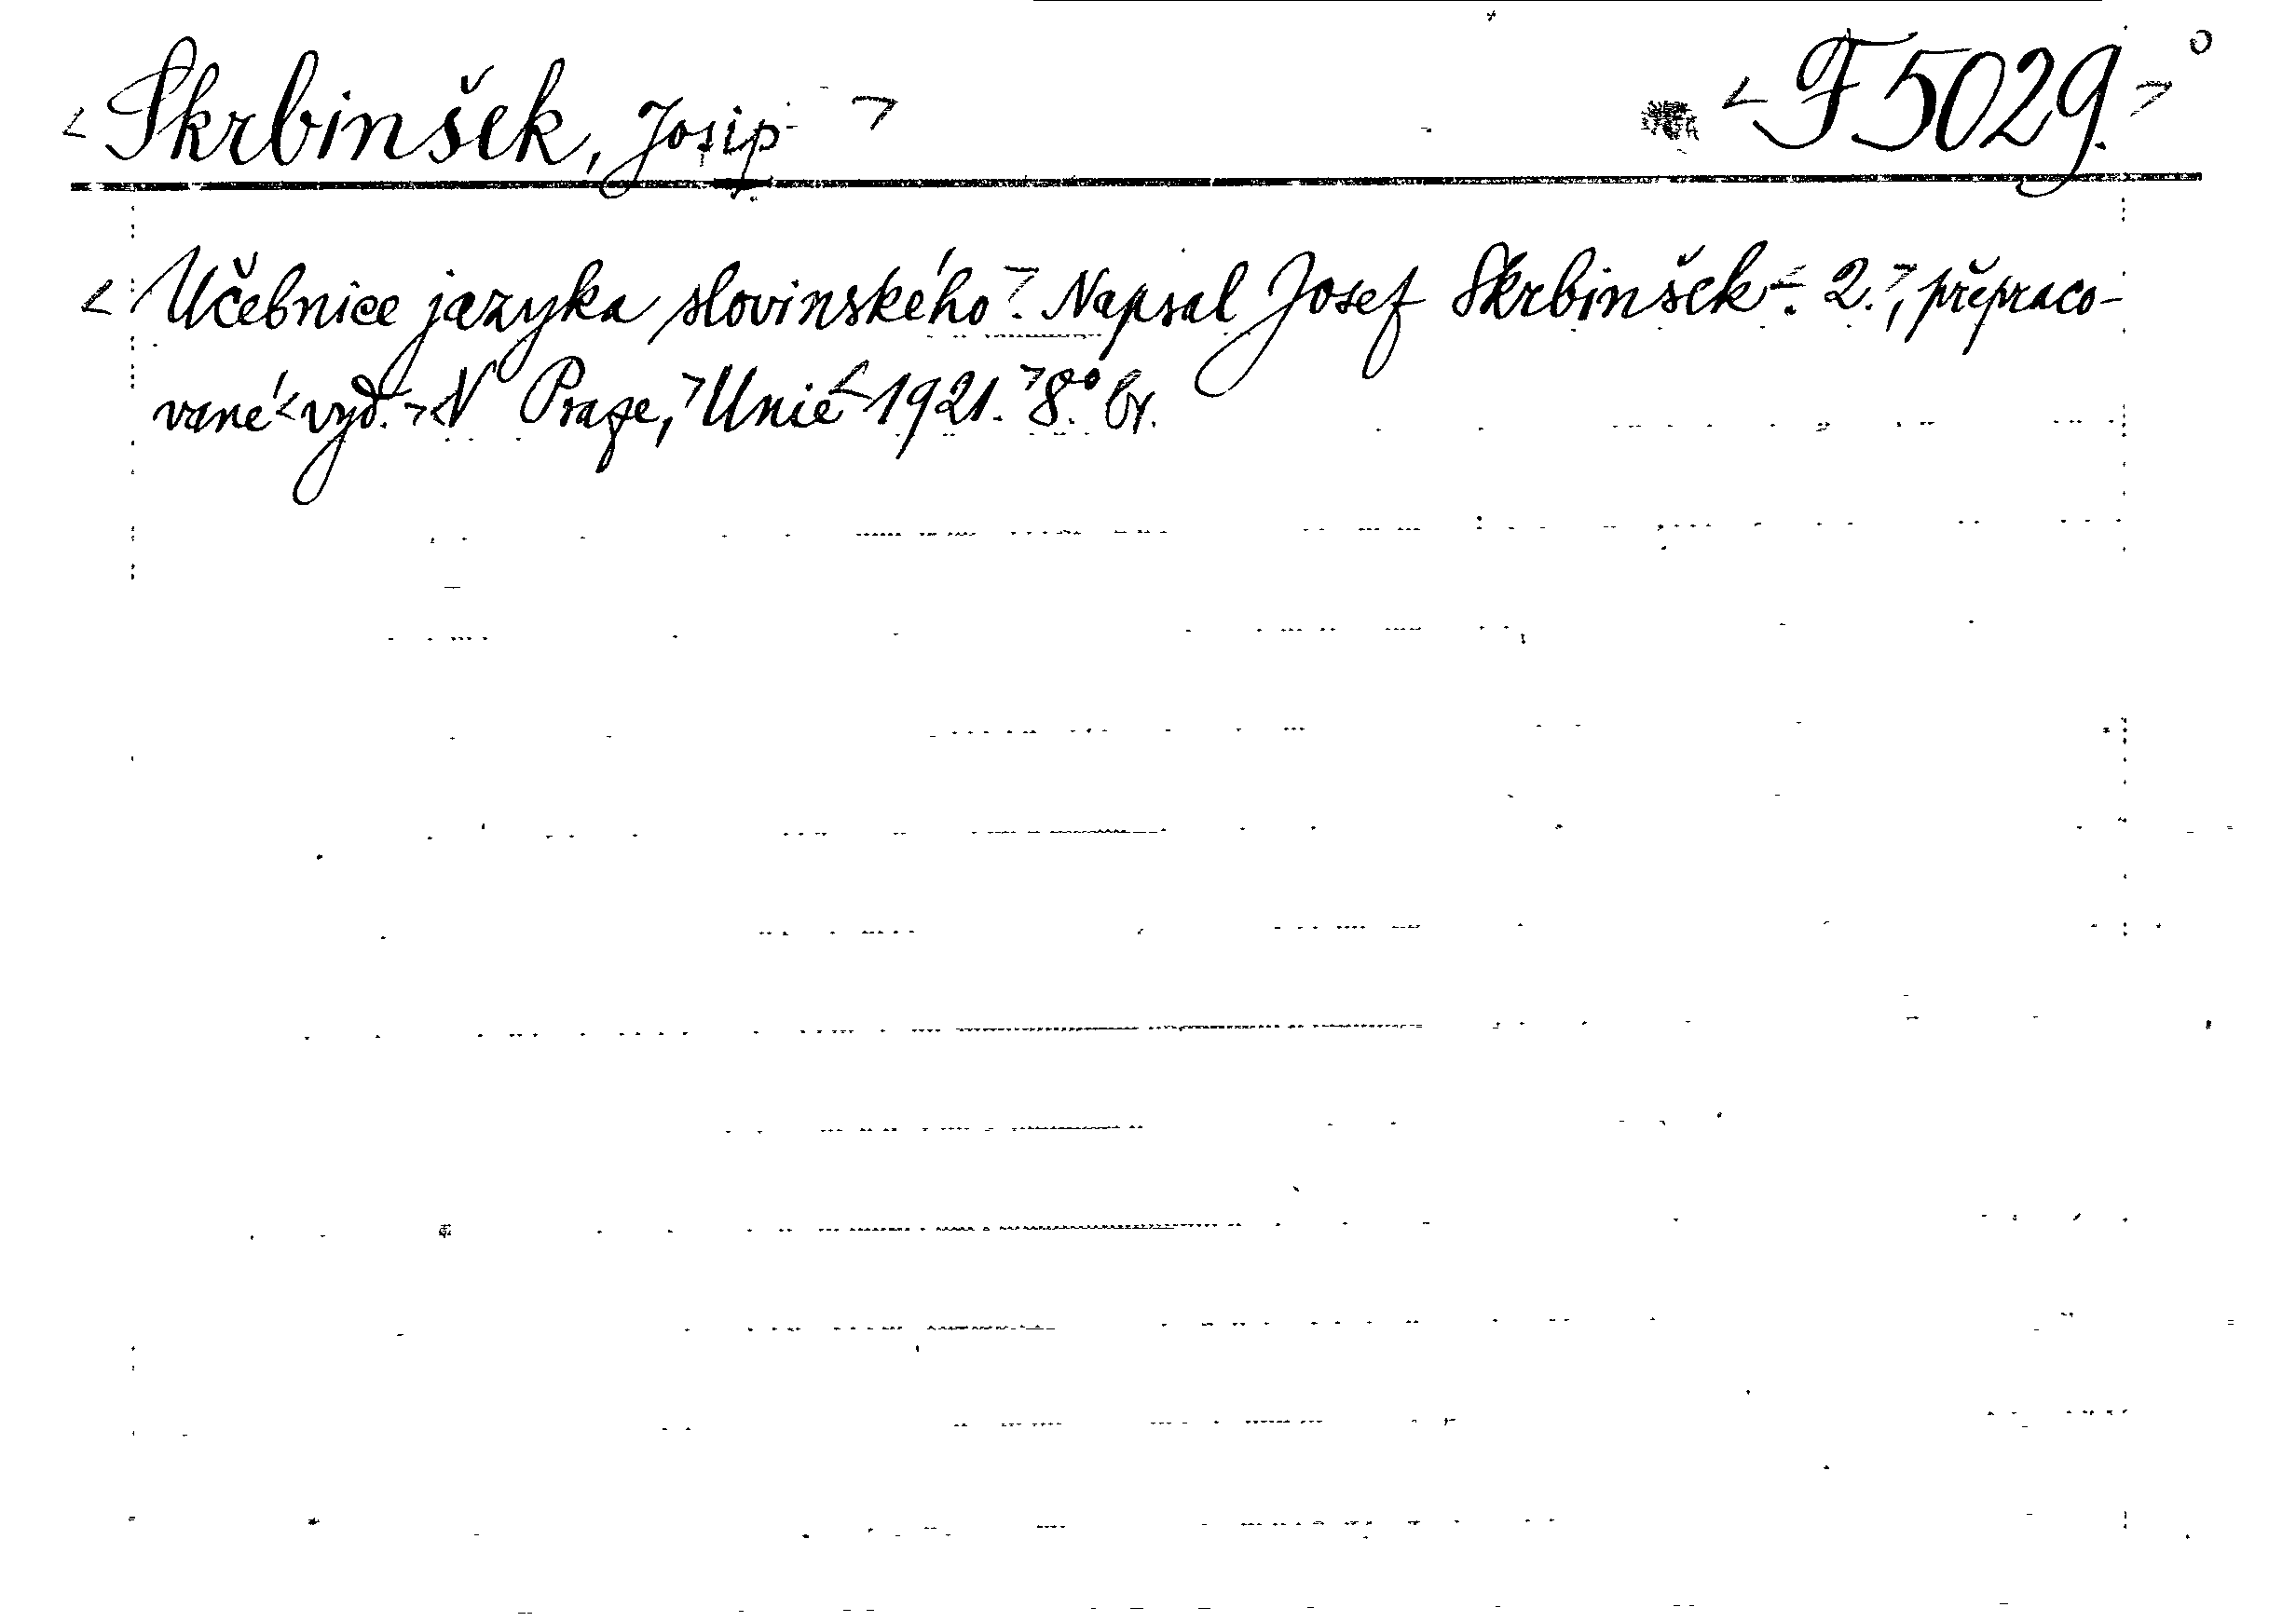 <Skrbinšek, Josip> <F 5029.>
<Učebnice jazyka slovinského>. Napsal Josef Skrbinšek<. 2.>, přepraco-
vané <vyd.> <V Praze,> Unie <1921.> 8.° br.